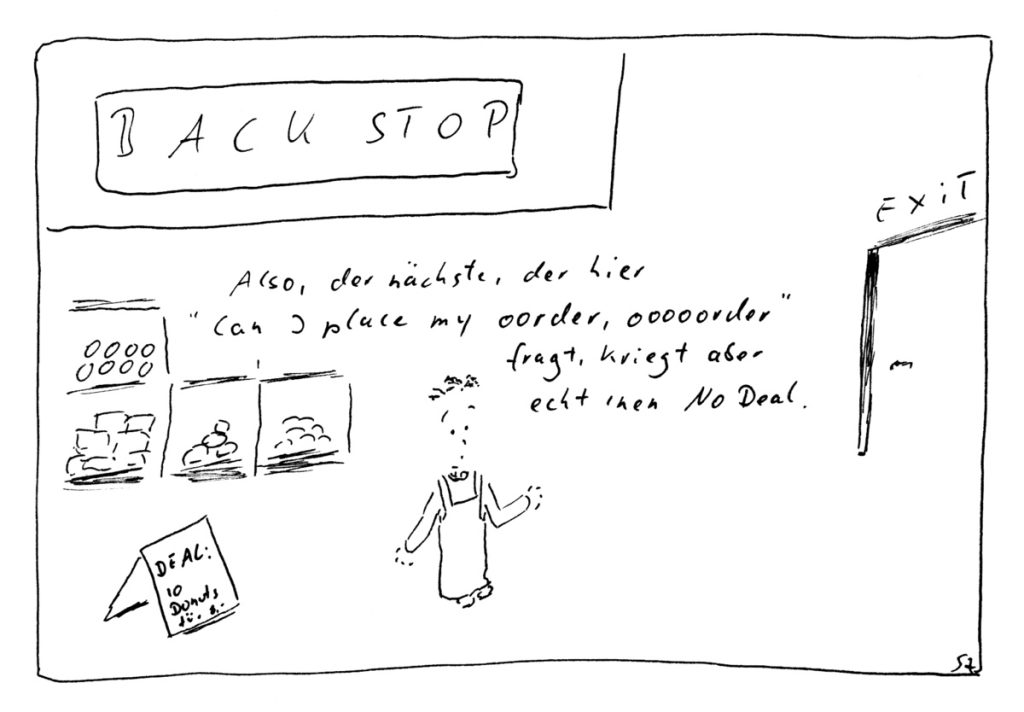 BACK STOP
EXiT
Also, der nächste, der hier
"Can I place my oorder, ooooorder"
fragt, kriegt aber
echt inen No Deal.
DEAL:
10
Donuts
für